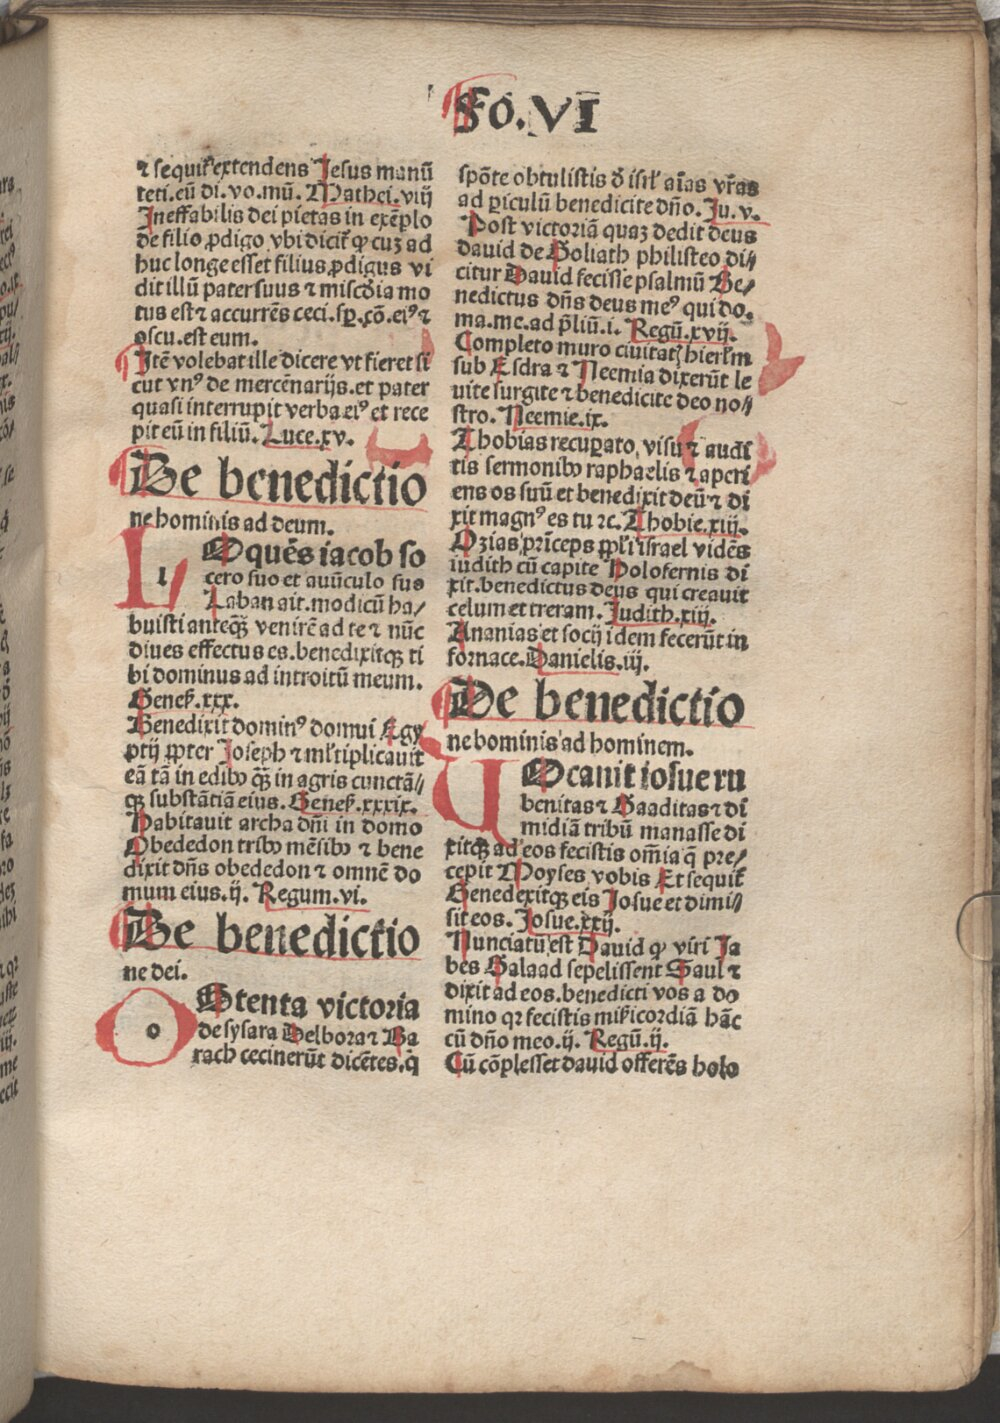 Fo. VI
⁊ sequiť extendens Jesus manũ
teti. eũ di. vo. mũ. Mathei. viij
Ineffabilis dei pietas in exẽplo
de filio ꝓdigo vbi dicit̃ ꝙ cuʒ ad
huc longe esset filius ꝓdigus vi
dit illũ pater suus ⁊ misc̃dia mo
tus est ⁊ accurrẽs ceci. sp̱. cõ. eiꝰ ⁊
oscu. est eum.
Itẽ volebat ille dicere vt fieret si
cut vnꝰ de mercẽnarijs. et pater
quasi interrupit verba eiꝰ et rece
pit eũ in filiũ. Luce. xv.
De benedictio
ne hominis ad deum.
l Oquẽs iacob so
cero suo et auũculo suo
Laban ait. modicũ ha/
buisti anteqꝫ̃ venirẽ ad te ⁊ nũc
diues effectus es. benedixitqꝫ ti
bi dominus ad introitũ meum.
Geneẜ. xxx.
Benedixit dominꝰ domui Egy
ptij ꝓpter Joseph ⁊ mľtiplicauit
eã tã in edibꝰ qꝫ̃ in agris cunctã/
qꝫ substãtiã eius. Geneẜ. xxxix.
Habitauit archa dñi in domo
Obededon tribꝰ mẽsibꝰ ⁊ bene
dixit dñs obededon ⁊ omnẽ do
mum eius. ij. Regum. vi.
De benedictio
ne dei.
o Btenta victoria
de sysara Delbora ⁊ Ba
rach cecinerũt dicẽtes. q̃
spõte obtulistis ð isrľ aĩas vr̃as
ad ꝑiculũ benedicite dño. Ju. v.
Post victoriã quaʒ dedit deus
dauid de Goliath philisteo di//
citur Dauid fecisse psalmũ Be/
nedictus dñs deus meꝰ qui do.
ma. me. ad p̃liũ. i. Regũ. xvij.
Completo muro ciuitatꝭ hierľm
sub Esdra ⁊ Neemia dixerũt le
uite surgite ⁊ benedicite deo no//
stro. Neemie. ix.
Thobias recuꝑato visu ⁊ audi
tis sermonibꝰ raphaelis ⁊ aperi
ens os suũ et benedixit deũ ⁊ di
xit magnꝰ es tu ⁊c. Thobie. xiij.
Ozias p̃rinceps ppľi israel vidẽs
iudith cũ capite Holofernis di
xit. benedictus deus qui creauit
celum et treram. Judith. xiij.
Ananias et socij idem fecerũt in
fornace. Danielis. iij.
De benedictio
ne hominis ad hominem.
V Ocauit iosue ru
benitas ⁊ Gaaditas ⁊ di
midiã tribũ manasse di
xitqꝫ ad eos fecistis om̃ia q̃ pre/
cepit Moyses vobis Et sequit̃
Benedexitqꝫ eis Josue et dimi//
sit eos. Josue. xxij.
Nunciatũ est Dauid ꝙ viri Ja
bes Galaad sepelissent Saul ⁊
dixit ad eos. benedicti vos a do
mino qꝛ fecistis mĩicordiã hãc
cũ dño meo. ij. Regũ. ij.
Cũ cõplesset dauid offerẽs holo